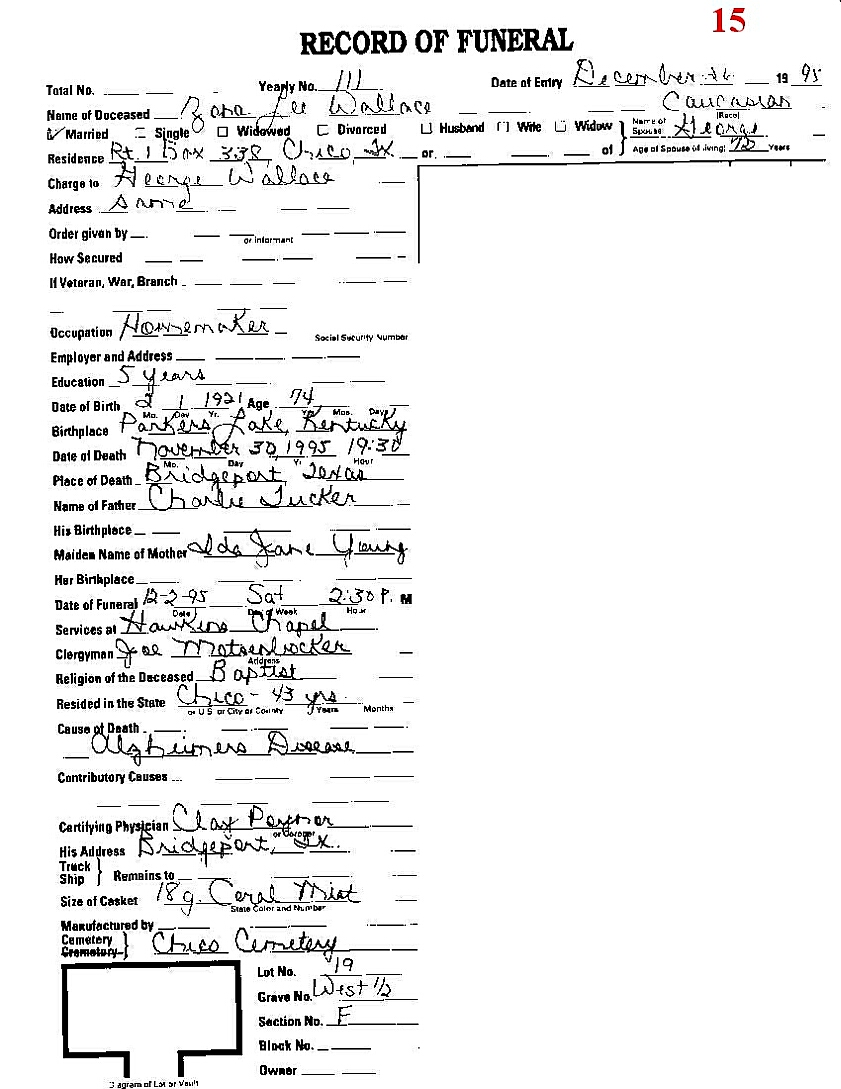 15
RECORD OF FUNERAL
Total No. Yearly No. 111 Date of Entry December 26 1995
Name of Deceased Zona Lee Wallace Caucasian
(Race)
Married Single Widowed Divorced Husband Wife Widow Name of Spouse George
Residence Rt. 1 Box 338, Chico, Tx. or of Age of Spouse of living: 72 Years
Charge to George Wallace
Address Same
Order given by
or informant
How Secured
If Veteran, War, Branch
Occupation Housemaker
Social Security Number
Employer and Address
Education 5 years
Date of Birth 2 1 1921 Age 74
Mo. Day Yr. Yr. Mos. Days
Birthplace Parkers Lake, Kentucky
Date of Death November 30, 1995 19:30
Mo. Day Yr. Hour
Place of Death Bridgeport, Texas
Name of Father Charlie Tucker
His Birthplace
Maiden Name of Mother Ida Jane Young
Her Birthplace
Date of Funeral 12-2-95 Sat 2:30 P. M
Date Day of Week Hour
Services at Hawkins Chapel
Clergyman Joe
Address
Religion of the Deceased Baptist
Resided in the State Chico - 43 yrs.
or U.S. or City or County Years Months
Cause of Death
Alzheimers Disease
Contributory Causes
Certifying Physician Clay
or Coroner
His Address Bridgeport, Tx.
Truck
Ship } Remains to
Size of Casket 18 g. Coral Mist
State Color and Number
Manufactured by
Cemetery
Crematory } Chico Cemetery
Lot No. 19
Grave No. West 1/2
Section No. F
Block No.
Owner
Diagram of Lot or Vault